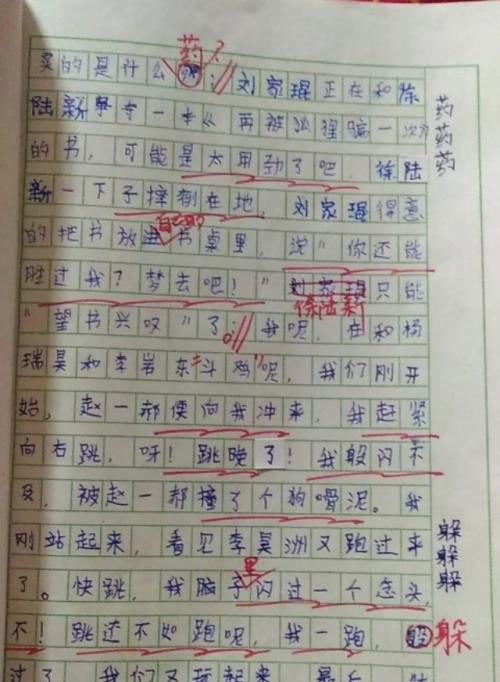 药?
买的是什么
刘家琨正在和徐
陆新拿寺一本《再被狐狸骗一次》
的书，可能是太用劲了吧，徐陆
新一下子摔倒在地，刘家琨得意
的把书放进书桌里，说"你还能
胜过我？梦去吧！"刘家琨只能
徐陆新
"望书兴叹"了。我呢，在和杨
瑞昊和李岩东"斗鸡"呢，我们刚开
始，赵一郝便向我冲来，我赶紧
向右跳，呀！跳晚了！我躲闪不
及，被赵一郝撞了个狗嚼泥。我
刚站起来，看见李昊洲又跑过来
了。快跳，我脑子闪过一个念头，
里
不！跳还不如跑呢，我一跑，躲
过了，我们又玩起来
药
药
药
躲
躲
躲
躲